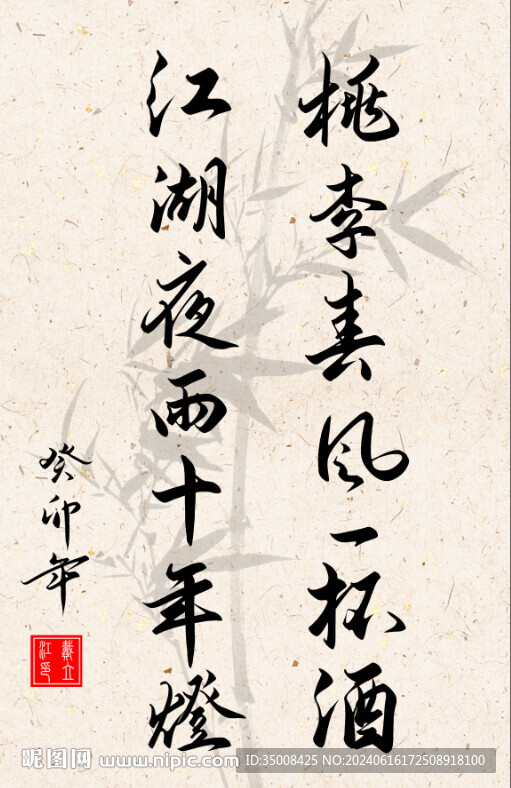 桃李春风一杯酒
江湖夜雨十年燈
癸卯年
戴立
江印
昵图网 www.nipic.com
ID:35008425 NO:20240616172508918100